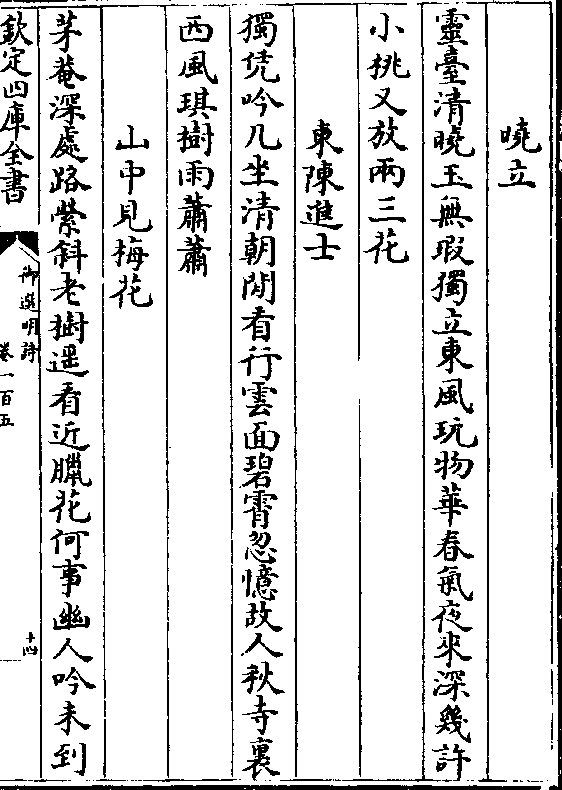 曉立
靈臺清曉玉無瑕獨立東風玩物華春氣夜來深幾許
小挑又放兩三花
東陳進士
獨凭吟几坐清朝閒看行雲面碧霄忽憶故人秋寺裏
西風琪樹雨蕭蕭
山中見梅花
茅菴深處路縈斜老樹遥看近臘花何事幽人吟未到
欽定四庫全書
御選明詩
卷一百五
十四